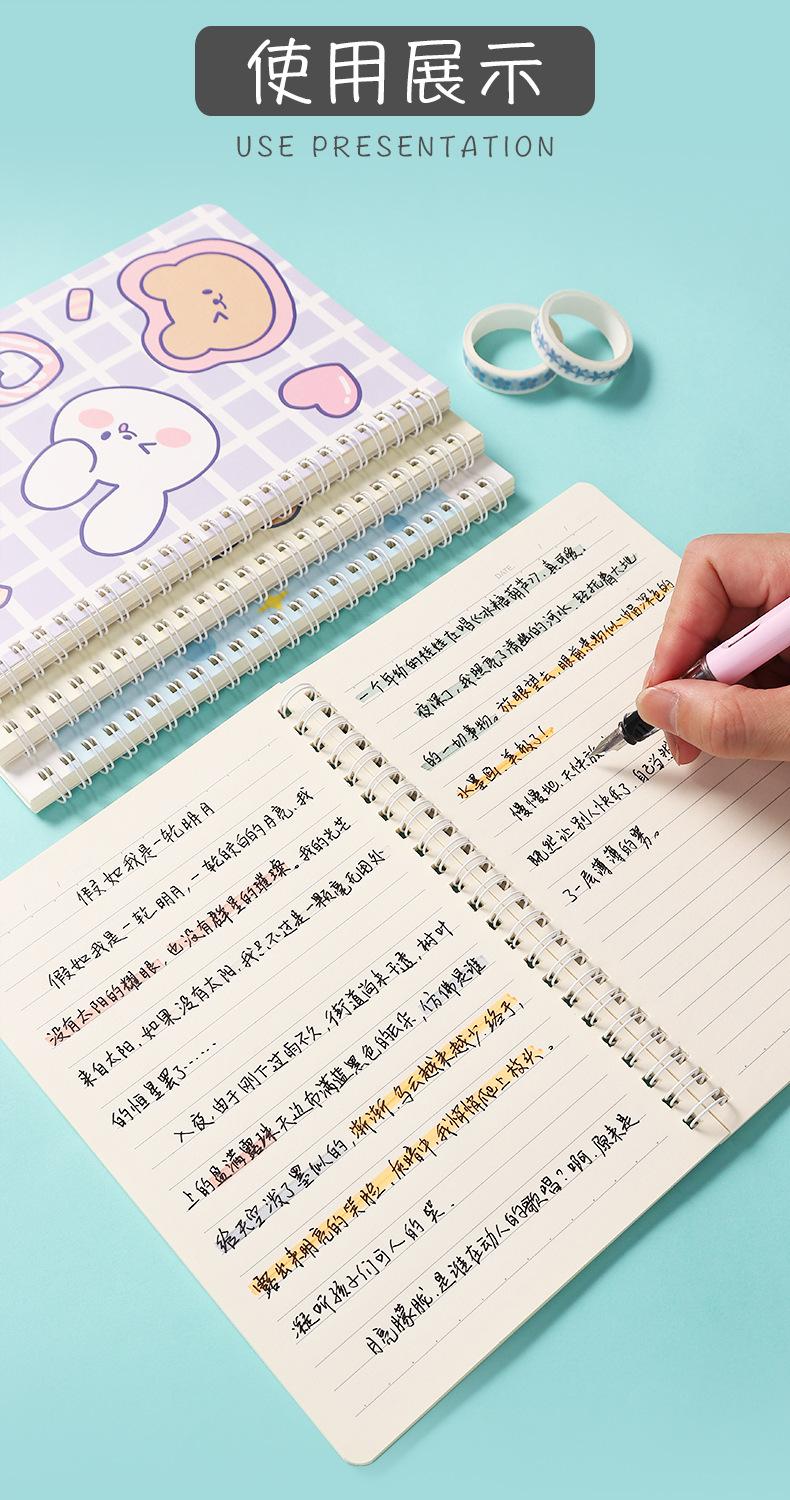 使用展示
USE PRESENTATION
假如我是一轮明月
假如我是一轮明月,一轮皎白的月亮,我
没有太阳的耀眼,也没有群星的璀璨。我的光芒
来自太阳,如果没有太阳,我只不过是一颗毫无用处
的恒星罢了……
入夜,由于刚下过雨不久,街道尚未干透,树叶
上的盈满露珠天边布满蓝黑色的云朵,仿佛是谁
给天空泼了墨似的,渐渐,乌云越来越少终于,
露出来明亮的笑脸,在暗中,我悄悄爬上枝头。
凝听孩子们可人的笑.
月亮朦胧,是谁在动人的歌唱?啊,原来是
DATE.
一个年幼的娃娃在唱《冰糖葫芦》,真可爱。
夜深了,我照亮了清幽的河水,轻抚着大地
的一切事物。放眼望去,眼前景物似一幅深色的
水墨画,美极了!
慢慢地,天快放
既然让别人快乐了,自己当我
了一层薄薄的雾。